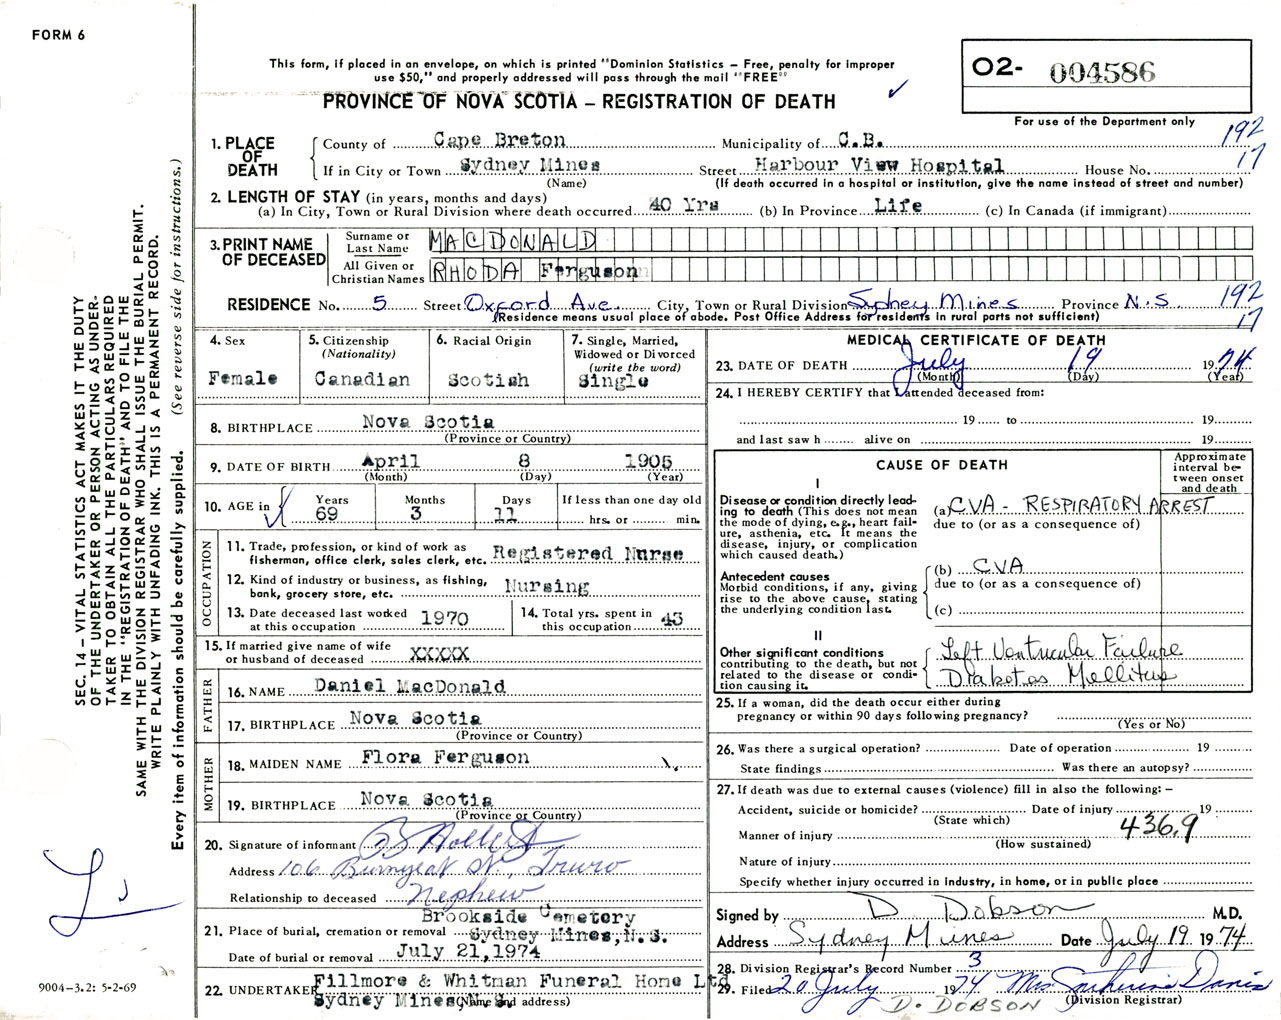 FORM 6
This form, if placed in an envelope, on which is printed "Dominion Statistics – Free, penalty for improper
use $50," and properly addressed will pass through the mail "FREE"
PROVINCE OF NOVA SCOTIA – REGISTRATION OF DEATH
02- 004586
For use of the Department only
192
17
1. PLACE OF DEATH
County of Cape Breton Municipality of C.B.
If in City or Town Sydney Mines Street Harbour View Hospital House No.
(Name) (If death occurred in a hospital or institution, give the name instead of street and number)
2. LENGTH OF STAY (in years, months and days)
(a) In City, Town or Rural Division where death occurred 40 Yrs (b) In Province Life (c) In Canada (if immigrant)
3. PRINT NAME OF DECEASED
Surname or Last Name MACDONALD
All Given or Christian Names RHODA Ferguson
RESIDENCE No. 5 Street Oxford Ave. City, Town or Rural Division Sydney Mines Province N.S
(Residence means usual place of abode. Post Office Address for residents in rural parts not sufficient)
192
17
4. Sex
Female
5. Citizenship
(Nationality)
Canadian
6. Racial Origin
Scotish
7. Single, Married,
Widowed or Divorced
(write the word)
Single
8. BIRTHPLACE Nova Scotia
(Province or Country)
9. DATE OF BIRTH April 8 1905
(Month) (Day) (Year)
10. AGE in
Years 69
Months 3
Days 11
If less than one day old
hrs. or min.
OCCUPATION
11. Trade, profession, or kind of work as
fisherman, office clerk, sales clerk, etc. Registered Nurse
12. Kind of industry or business, as fishing,
bank, grocery store, etc. Nursing
13. Date deceased last worked
at this occupation 1970
14. Total yrs. spent in
this occupation 43
15. If married give name of wife
or husband of deceased XXXXX
FATHER
16. NAME Daniel MacDonald
17. BIRTHPLACE Nova Scotia
(Province or Country)
MOTHER
18. MAIDEN NAME Flora Ferguson
19. BIRTHPLACE Nova Scotia
(Province or Country)
20. Signature of informant
Address 106 St., Truro
Relationship to deceased Nephew
Brookside Cemetery
21. Place of burial, cremation or removal Sydney Mines, N.S.
Date of burial or removal July 21, 1974
22. UNDERTAKER Fillmore & Whitman Funeral Home Ltd
Sydney Mines, N.S.
(Name and address)
MEDICAL CERTIFICATE OF DEATH
23. DATE OF DEATH July 19 1974
(Month) (Day) (Year)
24. I HEREBY CERTIFY that I attended deceased from:
19 to 19
and last saw h alive on 19
CAUSE OF DEATH
Approximate
interval be-
tween onset
and death
I
Disease or condition directly lead-
ing to death (This does not mean
the mode of dying, e.g., heart fail-
ure, asthenia, etc. It means the
disease, injury, or complication
which caused death.)
(a) CVA - RESPIRATORY ARREST
due to (or as a consequence of)
Antecedent causes
Morbid conditions, if any, giving
rise to the above cause, stating
the underlying condition last.
(b) CVA
due to (or as a consequence of)
(c)
II
Other significant conditions
contributing to the death, but not
related to the disease or condi-
tion causing it.
Left Ventricular Failure
Diabetes Mellitus
25. If a woman, did the death occur either during
pregnancy or within 90 days following pregnancy?
(Yes or No)
26. Was there a surgical operation? Date of operation 19
State findings Was there an autopsy?
27. If death was due to external causes (violence) fill in also the following: –
Accident, suicide or homicide? Date of injury 19
(State which)
Manner of injury 436.9
(How sustained)
Nature of injury
Specify whether injury occurred in industry, in home, or in public place
Signed by D Dobson M.D.
Address Sydney Mines Date July 19 1974
28. Division Registrar's Record Number 3
29. Filed 20 July 1974 Mrs Davis
(Division Registrar)
D. DOBSON
SEC. 14 – VITAL STATISTICS ACT MAKES IT THE DUTY
OF THE UNDERTAKER OR PERSON ACTING AS UNDER-
TAKER TO OBTAIN ALL THE PARTICULARS REQUIRED
IN THE "REGISTRATION OF DEATH" AND TO FILE THE
SAME WITH THE DIVISION REGISTRAR WHO SHALL ISSUE THE BURIAL PERMIT.
WRITE PLAINLY WITH UNFADING INK. THIS IS A PERMANENT RECORD.
Every item of information should be carefully supplied. (See reverse side for instructions.)
9004-3.2: 5-2-69